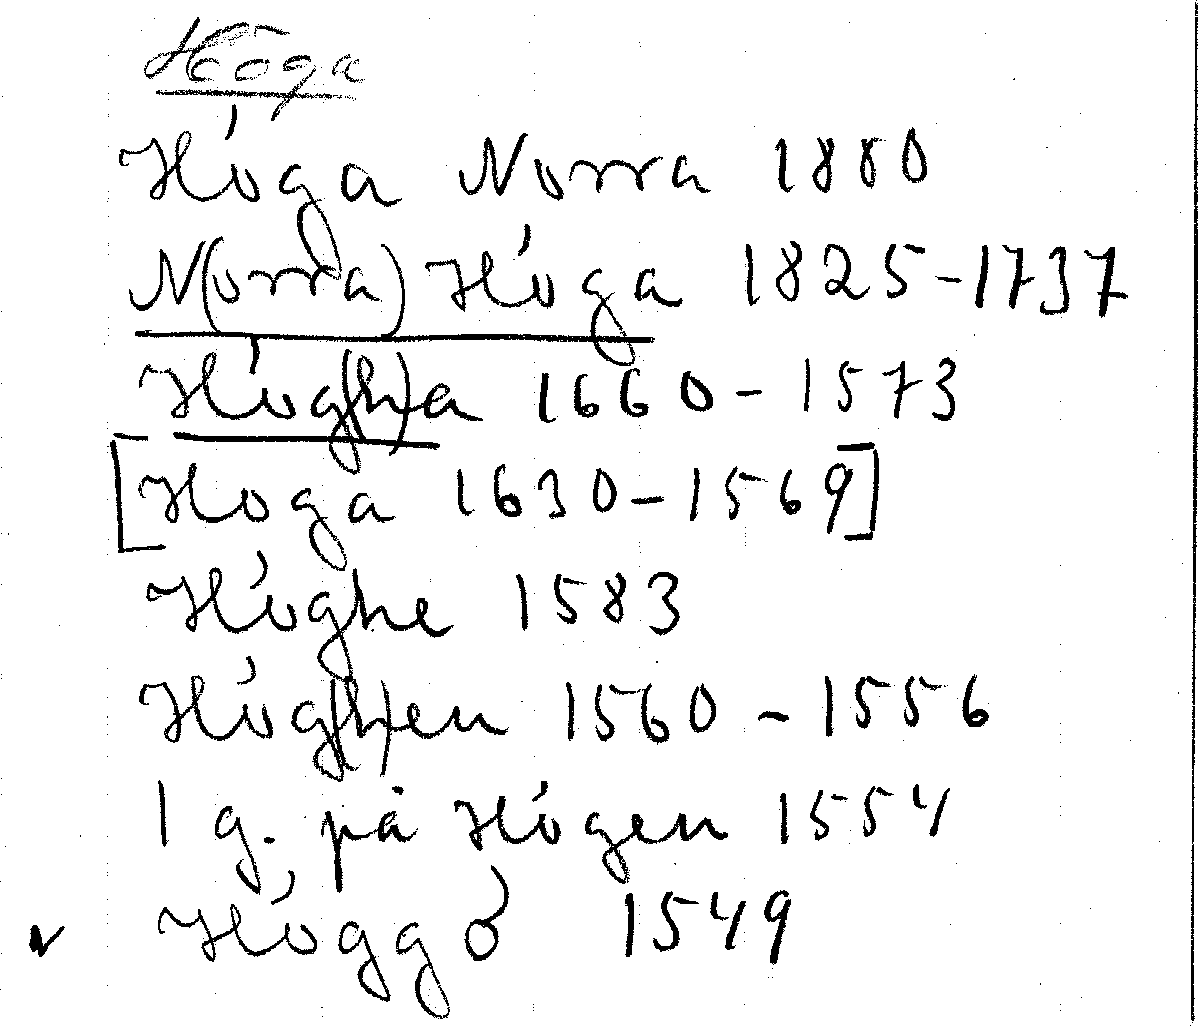 Höga
Höga Norra 1880
N(orra) Höga 1825-1737
Hög(h)a 1660-1573
[Hoga 1630-1569]
Höghe 1583
Hög(h)en 1560-1556
1 g. på Högen 1554
Höggö 1549